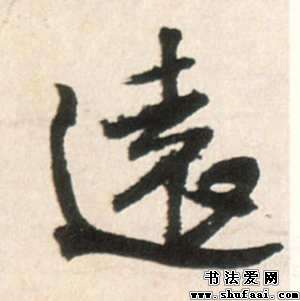 遠
书法爱网
www.shufaai.com